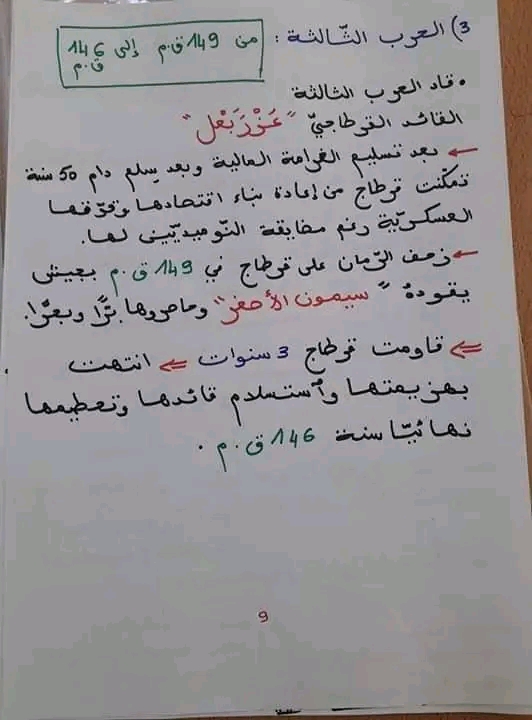 3) الحرب الثّالثة : من 149 ق.م إلى 146 ق.م
• قاد الحرب الثالثة
القائد القرطاجيّ "عَزْرَبَعْل"
← بعد تسليم الغرامة المالية وبعد سلم دام 50 سنة
تمكّنت قرطاج من إعادة بناء اقتصادها وقوّتها
العسكريّة رغم مضايقة النّوميديّين لها.
← زحف الرّمان على قرطاج في 149 ق.م بجيش
يقودهُ "سيمون الأصغر" وحاصروها برًّا وبحرًا.
⇐ قاومت قرطاج 3 سنوات ⇐ انتهت
بهزيمتها واستسلام قائدها وتحطيمها
نهائيّا سنة 146 ق.م.
9